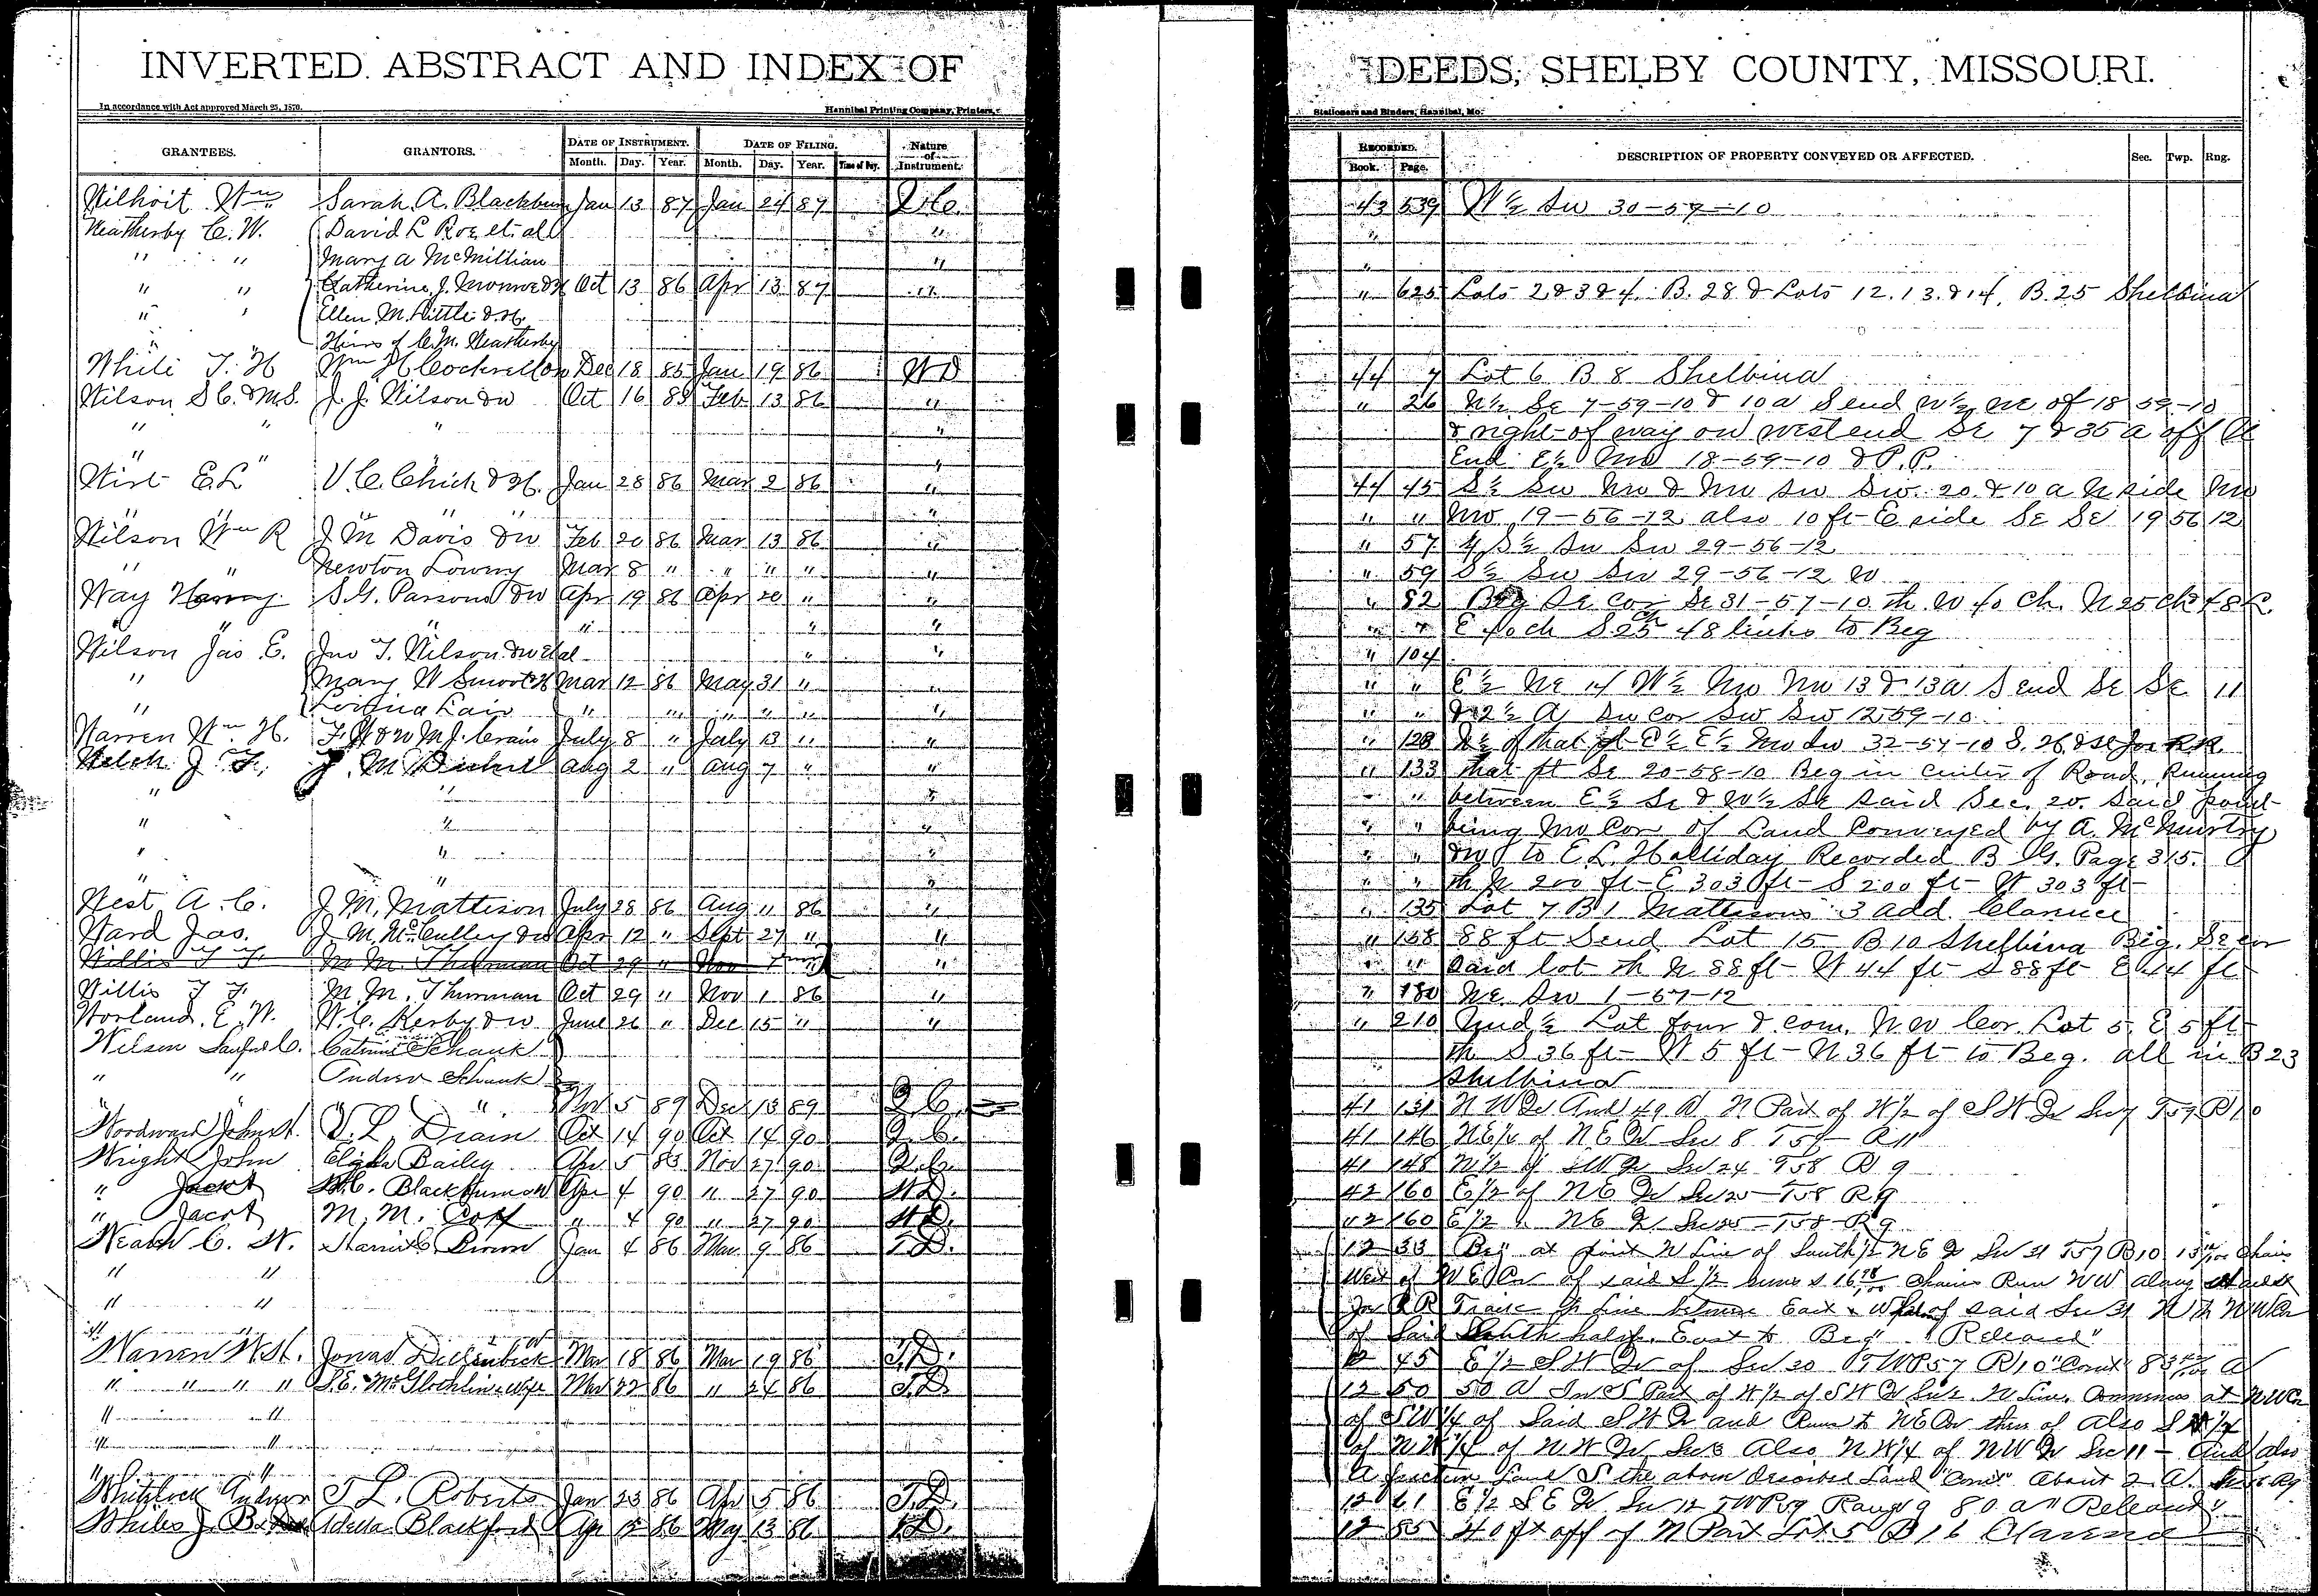 INVERTED ABSTRACT AND INDEX OF DEEDS, SHELBY COUNTY, MISSOURI.
In accordance with Act approved March 25, 1870. Hannibal Printing Company, Printers, Stationers and Binders, Hannibal, Mo.
GRANTEES. GRANTORS. DATE OF INSTRUMENT. DATE OF FILING. Nature of Instrument. RECORDED. DESCRIPTION OF PROPERTY CONVEYED OR AFFECTED. Sec. Twp. Rng.
Month. Day. Year. Month. Day. Year. Time of Day. Book. Page.
Wilhoit Wm Sarah A. Blackburn Jan 13 87 Jan 24 87 Q.C. 43 539 W½ Sw 30-57-10
Weatherby C. W. David L Roe et al " "
" " Mary A McMillian " "
" " Catherine J. Monroe & H Oct 13 86 Apr 13 87 " " 625 Lots 2 & 3 & 4. B. 28 & Lots 12. 13. & 14. B. 25 Shelbina
" " Ellen M. Little & H.
" " Heirs of C. M. Weatherby
White T. H Wm H Cockrell Dec 18 85 Jan 19 86 WD 44 7 Lot 6 B 8 Shelbina
Wilson S C. & M S. J. J. Wilson & w Oct 16 85 Feb 13 86 " " 26 N½ Se 7-59-10 & 10 a S end W½ Ne of 18 59-10
" " " " & right of way on west end Se 7 & 35 a off
" " " End E½ Nw 18-59-10 & P.P.
Wirt E L V. C. Chick & H. Jan 28 86 Mar 2 86 " 44 45 S½ Sw Nw & Nw Sw Sw 20 & 10 a N side Nw
" " " " " " " Nw 19-56-12 also 10 ft E side Se Se 19 56 12
Wilson Wm R J M Davis & w Feb 20 86 Mar 13 86 " " 57 S½ Sw Sw 29-56-12
" " Newton Lowry Mar 8 " " " " " " 59 S½ Sw Sw 29-56-12
Way Harry S. G. Parsons & w Apr 19 86 Apr 20 " " " 82 Beg Se Cor Se 31-57-10 th W 40 Ch. N 25 ch 48 l.
" " " " " " " E 40 ch S 25 ch 48 links to Beg
Wilson Jas E. Jno T. Wilson & w et al " " " 104
" Mary W Smoot & H Mar 12 86 May 31 " " " " E½ Ne of W½ Nw Nw 13 & 13 a S end Se Se 11
" Lair " " " " " " " " & 2½ A Sw Cor Sw Sw 12 59-10
Warren Wm. H. T. H & w M J. Crain July 8 " July 13 " " " 128 N½ of that pt E½ E½ Nw Sw 32-57-10 S. H & St Joe RR
Welch J. F. J. M. Aug 2 " Aug 7 " " " 133 that pt Se 20-58-10 Beg in Center of Road, Running
" " " " " between E½ Se & W½ Se said Sec. 20. Said point
" " " " " being Nw Cor of Land Conveyed by A. McMurtry
" " " " " & w to E L. Holliday Recorded B G. Page 315.
" " " " " th N 200 ft E 303 ft S 200 ft W 303 ft
West A. C. J M. Mattison July 28 86 Aug 11 86 " " 135 Lot 7 B 1 Mattisons 3 add. Clarence
Ward Jas. J. M. McCulley & w Apr 12 " Sept 27 " " " 158 88 ft S end Lot 15 B 10 Shelbina Beg. Se cor
Willis T F M M. Thurman Oct 29 " Nov 1 " " " " Said lot th N 88 ft W 44 ft S 88 ft E 44 ft
Willis T F. M. M. Thurman Oct 29 " Nov 1 86 " " 180 Ne Sw 1-57-12
Worland E. W. W. C. Kerby & w June 26 " Dec 15 " " " 210 Und ½ Lot four & com. N W Cor. Lot 5. E 5 ft
Wilson Sanford C. Catrine Schank th S 36 ft W 5 ft N 36 ft to Beg. all in B 23
" " Andrew Schank Shelbina
" " " Nov 5 89 Dec 13 89 Q. C. 41 131 N W Qr And 49 A N Part of W ½ of S W Qr Sec 7 T57 R10
Woodward John H. V. L. Drain Oct 14 90 Oct 14 90 Q. C. 41 146 N E ¼ of N E Qr Sec 8 T57 R 11
Wright John Elijah Bailey Apr 5 83 Nov 27 90 Q. C. 41 148 N ½ of S W Qr Sec 24 T58 R 9
" Jacob W. C. Blackburn & W Apr 4 90 " 27 90 W D. 42 160 E ½ of N E Qr Sec 25 T58 R 9
" Jacob M. M. Goff " 4 90 " 27 90 W D. 42 160 E ½ " N E Qr Sec 25 T58 R 9
C. W. Harriet Brown Jan 4 86 Mar 9 86 T. D. 12 33 Beg at point N Line of South ½ N E Qr Sec 31 T57 R10 Chains
" " West of N E Cor of said S ½ Chains Run N W along
" " Joe R R Track to line between East & W of said Sec 31 N to N W Cor
" " of Said South half. East to Beg "Released"
Warren W H. Jonas Dieffenbeck & W Mar 18 86 Mar 19 86 T. D. 12 45 E ½ S W Qr of Sec 20 TWP 57 R 10 "Cont" 83 A
" " " " S. E. McGlothlin & Wife Mar 22 86 " 24 86 T. D. 12 50 50 A In S Part of W ½ of S W Qr Sec 2 N Line Commences at N W Cor
" " of S W ¼ of Said S W Qr and Run to N E Cor there of Also S W ¼
" " of N W ¼ of N W Qr Sec Also N W ¼ of N W Qr Sec 11 - And also
" " A fraction Land S the above Described Land "Cont" About 2 A.
Whitelock Andrew T L. Roberts Jan 23 86 Apr 5 86 T. D. 12 61 E ½ S E Qr Sec 12 TWP 59 Range 9 80 a "Released"
Whiles J. B. Adella Blackford Apr 12 86 May 13 86 T.D. 12 85 40 ft off of N Part Lot 5 B 16 Clarence